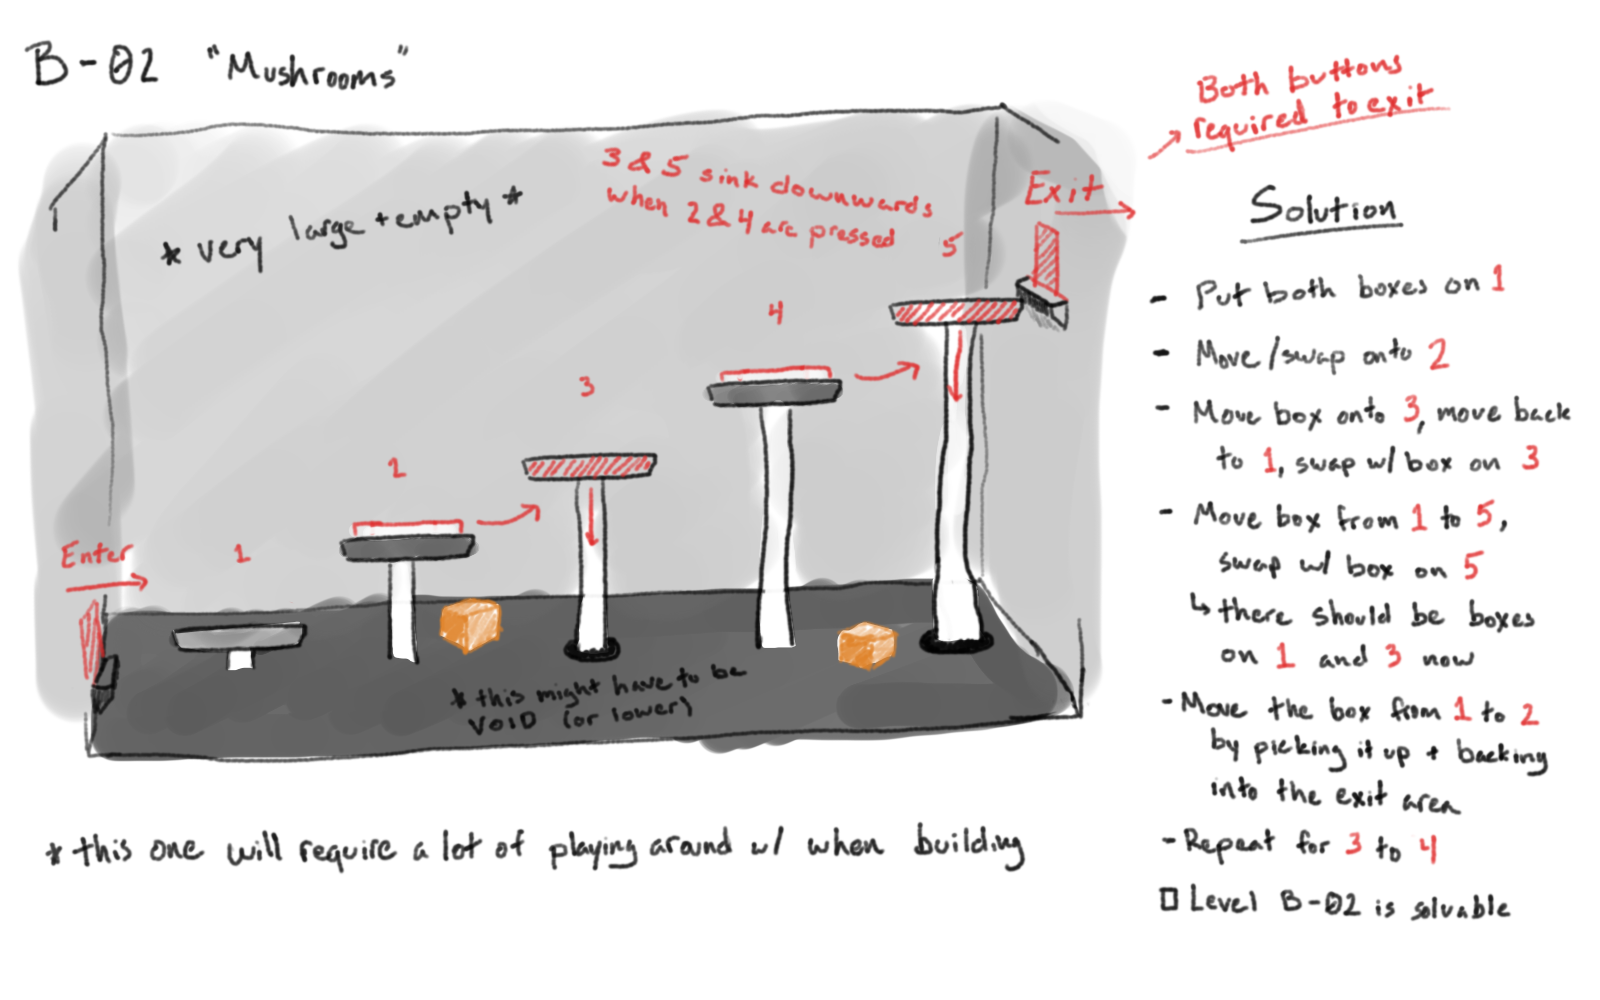 B-02 "Mushrooms"
Both buttons
required to exit
3 & 5 sink downwards
when 2 & 4 are pressed
* very large + empty *
Exit
5
4
3
2
1
Enter
* this might have to be
VOID (or lower)
* this one will require a lot of playing around w/ when building
Solution
- Put both boxes on 1
- Move/swap onto 2
- Move box onto 3, move back
to 1, swap w/ box on 3
- Move box from 1 to 5,
swap w/ box on 5
↳ there should be boxes
on 1 and 3 now
- Move the box from 1 to 2
by picking it up + backing
into the exit area
- Repeat for 3 to 4
□ Level B-02 is solvable